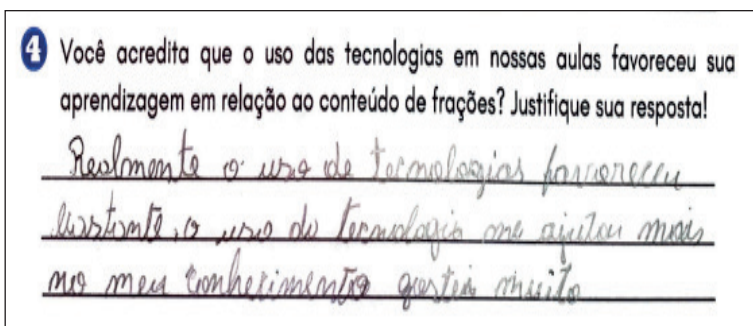 4 Você acredita que o uso das tecnologias em nossas aulas favoreceu sua
aprendizagem em relação ao conteúdo de frações? Justifique sua resposta!
Realmente o uso de tecnologias favoreceu
bastante, o uso da tecnologia me ajutou mais
no meu conhecimento gostei muito